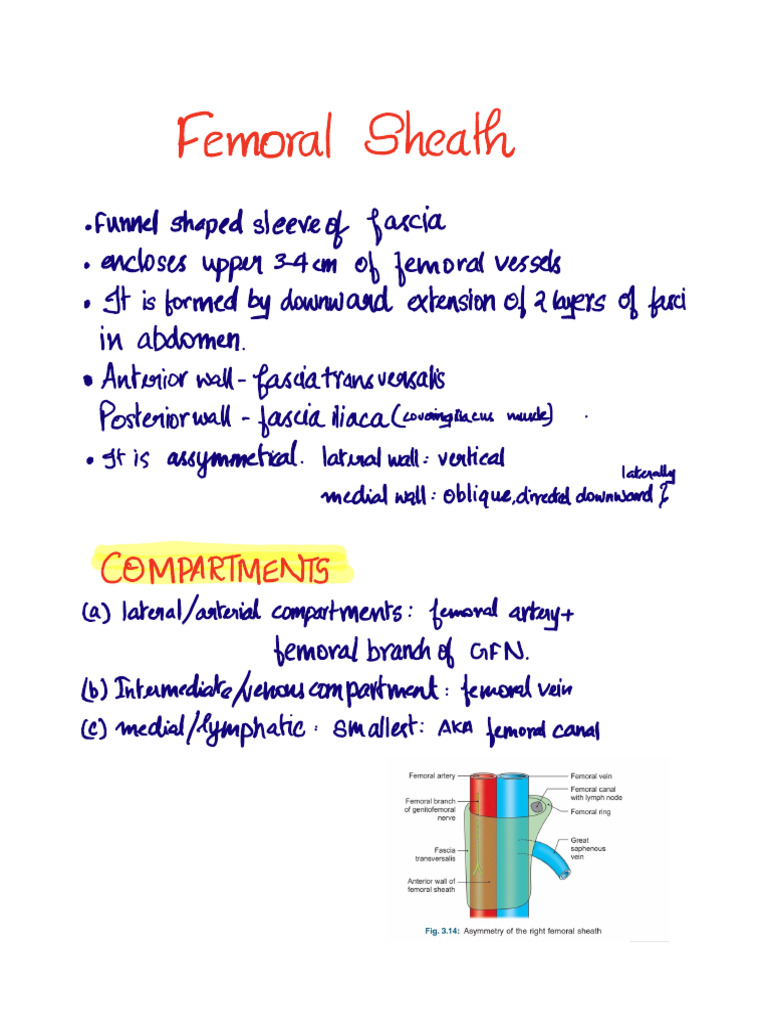 Femoral Sheath
• Funnel shaped sleeve of fascia
• encloses upper 3-4 cm of femoral vessels
• It is formed by downward extension of 2 layers of fasci
in abdomen.
• Anterior wall - fascia transversalis
Posterior wall - fascia iliaca (covering iliacus muscle)
• It is assymmetical. lateral wall: vertical
laterally
medial wall: oblique, directed downward &
COMPARTMENTS
(a) lateral/arterial compartments: femoral artery+
femoral branch of GFN.
(b) Intermediate/venous compartment: femoral vein
(c) medial/lymphatic: smallest: AKA femoral canal
Femoral artery
Femoral vein
Femoral canal
with lymph node
Femoral branch
of genitofemoral
nerve
Femoral ring
Great
saphenous
vein
Fascia
transversalis
Anterior wall of
femoral sheath
Fig. 3.14: Asymmetry of the right femoral sheath